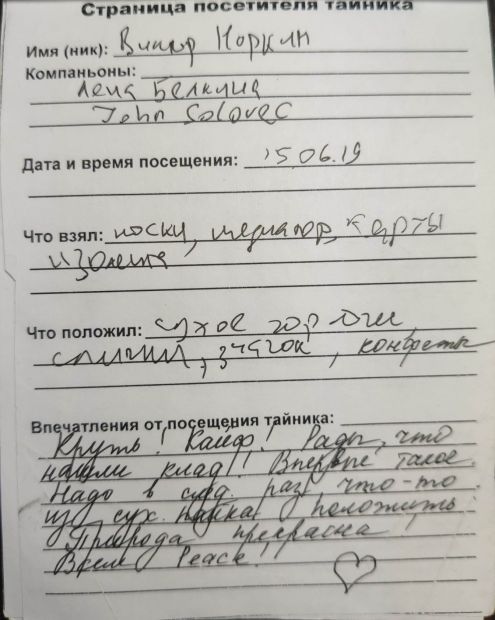 Страница посетителя тайника
Имя (ник): Виктор Норкин
Компаньоны:
Лена Белкина
John Solovec
Дата и время посещения: 15.06.19
Что взял: носки, медиатор, карты
изолента
Что положил: сухое горючее,
спички, значок, конфеты
Впечатления от посещения тайника:
Круть! Кайф! Рады, что
нашли клад!! Впервые такое.
Надо в след. раз что-то
из сух. пайка положить
Природа прекрасна!
Всем Peace!